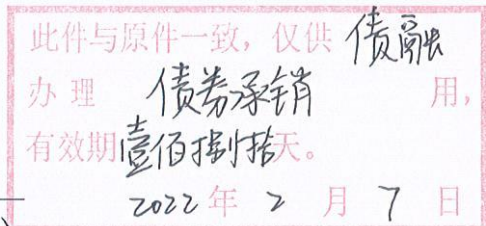 此件与原件一致，仅供 债融
办理 债券承销 用，
有效期壹佰捌拾天。
2022年2月7日